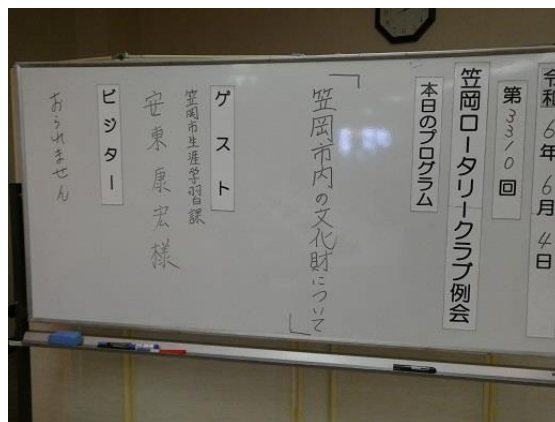 令和6年6月4日
第3310回
笠岡ロータリークラブ例会
本日のプログラム
「笠岡市内の文化財について」
ゲスト
笠岡市生涯学習課
安東康宏様
ビジター
おられません